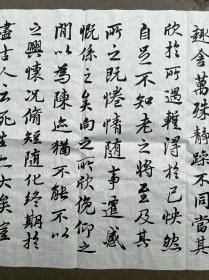 趣舍萬殊静躁不同當其
欣於所遇輕得於己快然
自足不知老之將至及其
所之既惓情随事遷感
慨係之矣向之所欣俛仰之
間以為陳迹猶不能不以
之興懷况脩短随化终期於
盡古人云死生亦大矣豈